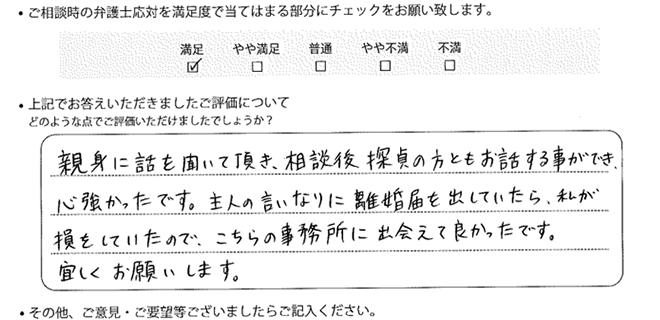 ・ご相談時の弁護士応対を満足度で当てはまる部分にチェックをお願い致します。
満足 やや満足 普通 やや不満 不満
☑ □ □ □ □
・上記でお答えいただきましたご評価について
どのような点でご評価いただけましたでしょうか？
親身に話を聞いて頂き、相談後探偵の方ともお話する事ができ、
心強かったです。主人の言いなりに離婚届を出していたら、私が
損をしていたので、こちらの事務所に出会えて良かったです。
宜しくお願いします。
・その他、ご意見・ご要望等ございましたらご記入ください。